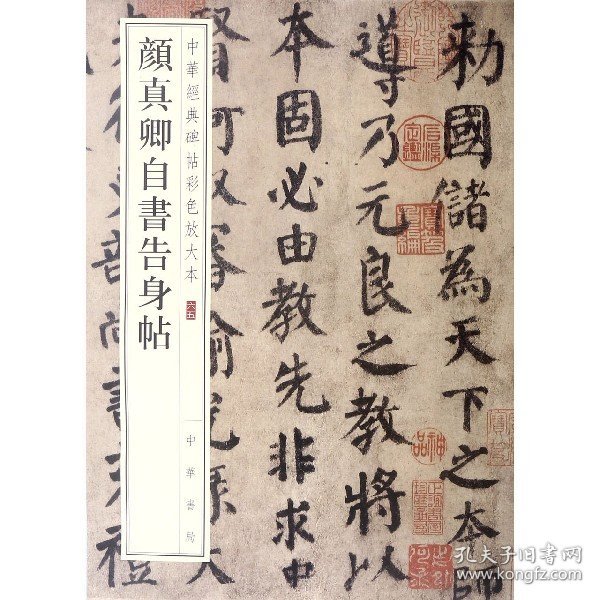 勅國儲為天下之本師
導乃元良之教將以
本固必由教先非求中
賢何以審諭
光祿大
顏真卿自書告身帖
中華經典碑帖彩色放大本
六五
中華書局
孔夫子旧书网
www.kongfz.com